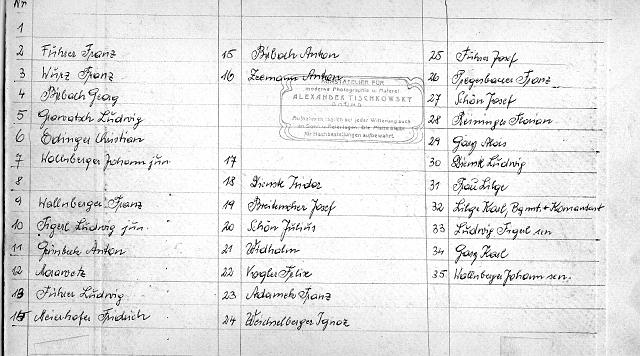 Nr
1
2 Führer Franz
3 Würz Franz
4 Birbach Georg
5 Ludwig
6 Edinger Christian
7 Wallnberger Johann jun.
8
9 Wallnberger Franz
10 Figerl Ludwig jun
11 Grünbeck Anton
12
13 Führer Ludwig
15 Meierhofer Friedrich
15 Birbach Anton
16 Zeemann Anton
17
18 Dienstl Isidor
19 Breitenecher Josef
20 Schön Julius
21 Widhalm
22 Kogler Felix
23 Adamek Franz
24 Weichselberger Ignaz
KUNSTATELIER FÜR
moderne Photographie u. Malerei
ALEXANDER TISCHKOWSKY
Aufnahmen täglich bei jeder Witterung auch
an Sonn- u. Feiertagen. Die Platte bleibt
für Nachbestellungen aufbewahrt.
25 Führer Josef
26 Franz
27 Schön Josef
28 Florian
29 Alois
30 Dienstl Ludwig
31 Frau Libge
32 Libge Karl, Bgmt. + Komandant
33 Ludwig Figerl sen
34 Karl
35 Wallnberger Johann sen.